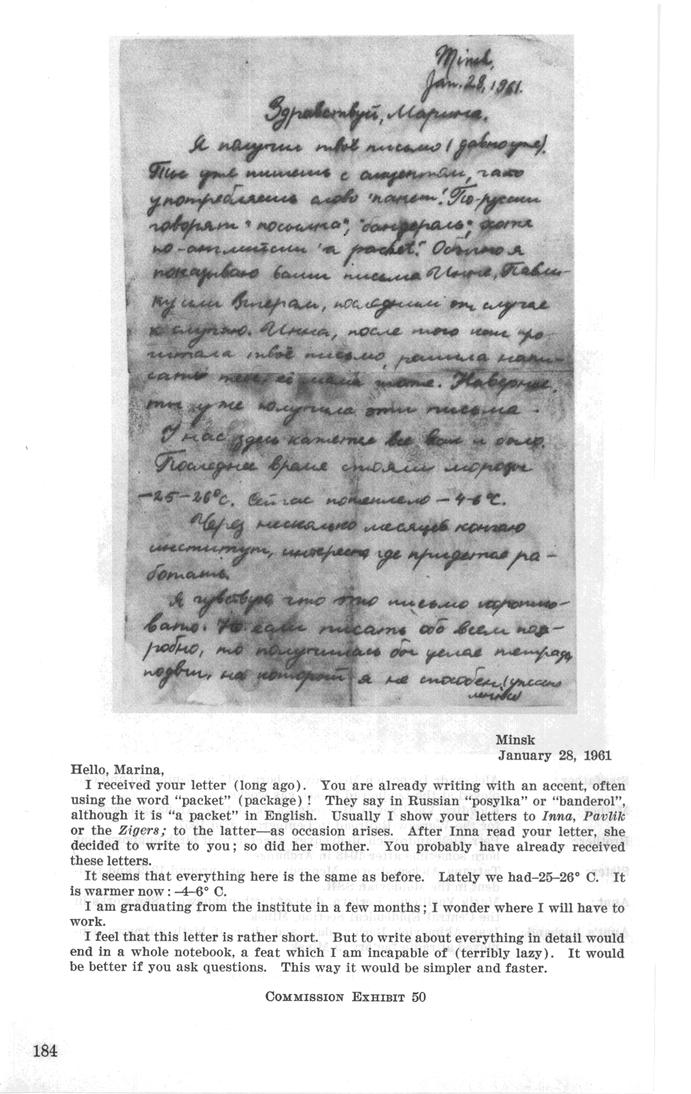 Minsk,
Jan. 28, 1961.
Здравствуй, Марина.
Я получил твоё письмо (давно уже).
Ты уже пишешь с акцентом, часто
употребляешь слово "пакет"! По-русски
говорят "посылка", "бандероль", хотя
по-английски "a packet". Обычно я
показываю ваши письма Инне, Павли-
ку или Зигерам, последним от случая
к случаю. Инна, после того как про-
читала твоё письмо, решила напи-
сать тебе, её мама тоже. Наверное,
ты уже получила эти письма.
У нас здесь кажется все как и было.
Последнее время стояли морозы
-25-26°C. Сейчас потеплело -4-6°C.
Через несколько месяцев кончаю
институт, интересно где придется ра-
ботать.
Я чувствую что это письмо коротко-
вато. Но если писать обо всем под-
робно, то получилась бы целая тетрадь,
подвиг, на который я не способен (ужасно
ленив)
Minsk
January 28, 1961
Hello, Marina,
I received your letter (long ago). You are already writing with an accent, often
using the word "packet" (package)! They say in Russian "posylka" or "banderol",
although it is "a packet" in English. Usually I show your letters to Inna, Pavlik
or the Zigers; to the latter—as occasion arises. After Inna read your letter, she
decided to write to you; so did her mother. You probably have already received
these letters.
It seems that everything here is the same as before. Lately we had-25-26° C. It
is warmer now: -4-6° C.
I am graduating from the institute in a few months; I wonder where I will have to
work.
I feel that this letter is rather short. But to write about everything in detail would
end in a whole notebook, a feat which I am incapable of (terribly lazy). It would
be better if you ask questions. This way it would be simpler and faster.
COMMISSION EXHIBIT 50
184